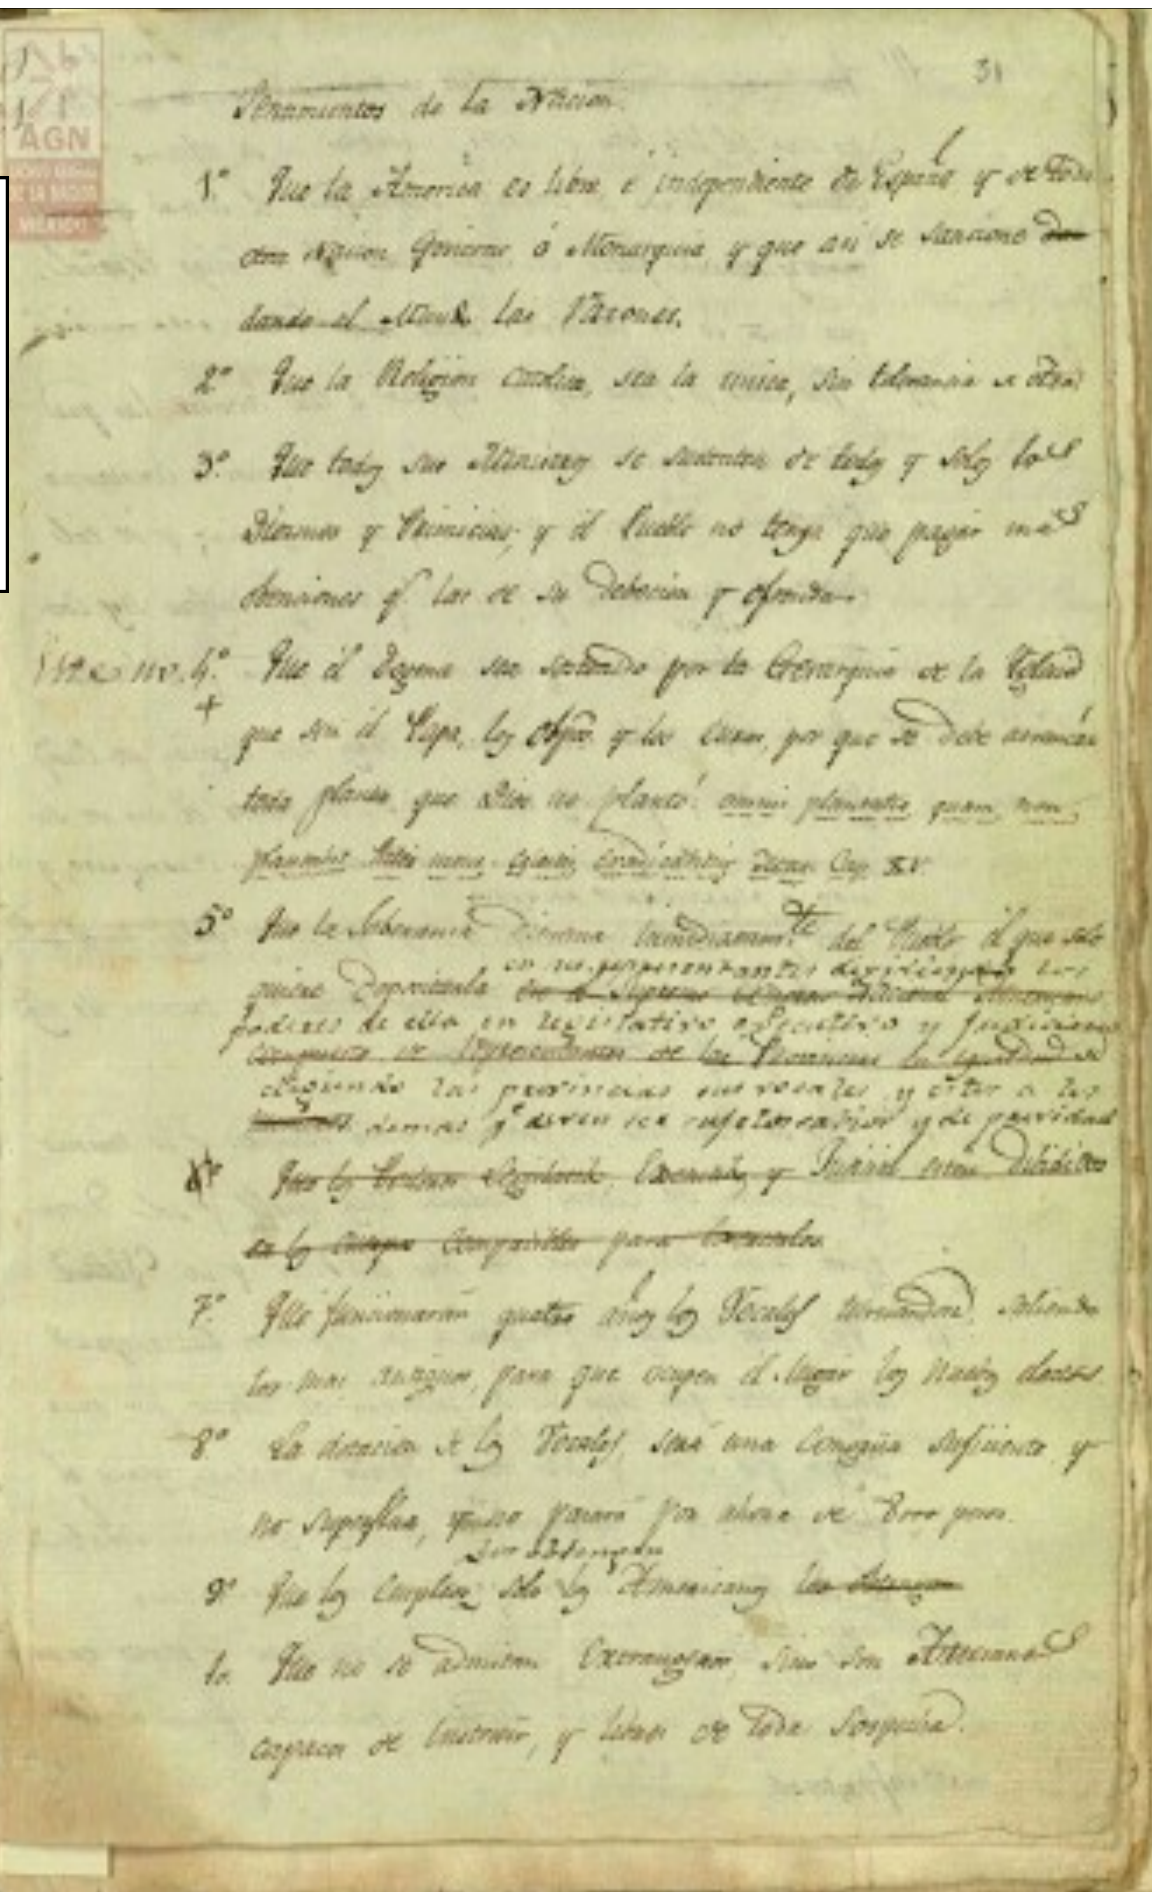 31
AGN
MÉXICO
Sentimientos de la Nacion.
1º Que la America es libre é independiente de España y de toda
otra Nacion, Govierno ó Monarquia, y que asi se sancione dan
dando al Mundo las Razones.
2º Que la Religion Catolica, sea la unica, sin tolerancia de otra.
3º Que todos sus Ministros se sustenten de todos y solos los
Diezmos y Primicias, y el Pueblo no tenga que pagar mas
obenciones q.e las de su debocion y ofrenda.
4º Que el Dogma sea sostenido por la Gerarquia de la Yglesia
+
que son el Papa, los Obispos y los Curas, por que se debe arrancar
toda planta que Dios no plantó: omnis plantatio quam non
plantavit Pater meus Celestis eradicabitur Cap. XV.
5º Que la Soberania dimana inmediatamente del Pueblo el que solo
en sus representantes dividiendo los
quiere depositarla en el Supremo Congreso Nacional Americano
poderes de ella en legislativo executivo y judiciario
compuesto de representantes de las Provincias en igualdad de
eligiendo las provincias sus vocales, y estos a los
demas q.e deven ser sujetos sabios y de providad
Que los Poderes Legislativo, Executivo y Judicial esten divididos
en los cuerpos compatibles para exercerlos
7º Que funcionarán quatro años los Vocales turnandose, saliendo
los mas antiguos, para que ocupen el lugar los nuebos electos
8º La dotacion de los Vocales, será una congrua suficiente y
no superflua, y no pasará por ahora de 8000 pesos
los obtengan
9º Que los empleos solo los Americanos los obtengan
10. Que no se admitan Extrangeros, sino son Artesanos
capaces de instruir, y libres de toda sospecha.